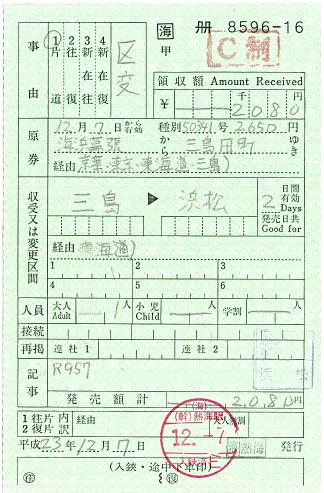 海 冊 8596-16
甲 C制
事由 1片道 2往復 3新在往 4新在往復 区変
領収額 Amount Received
千 円
¥ 2080
原券 12月7日から有効 種別 50341号 2650円
浜松幕張 から 三島田町 ゆき
経由 京葉,東京,東海道,三島)
収受又は変更区間
三島 ▶ 浜松 2日間有効 Days 発売日共 Good for
経由 東海道)
1 2 3
4 5 6
人員 大人 Adult 1人 小児 Child 人 学割 人
接続
再掲 連社1 連社2
記事 R957
発売額計 2,080円
1往片内 2復片訳 経由 大人無割
平成23年12月7日 熱海 発行
(海) (幹)熱海駅
12.-7
(入鋏・途中下車印)